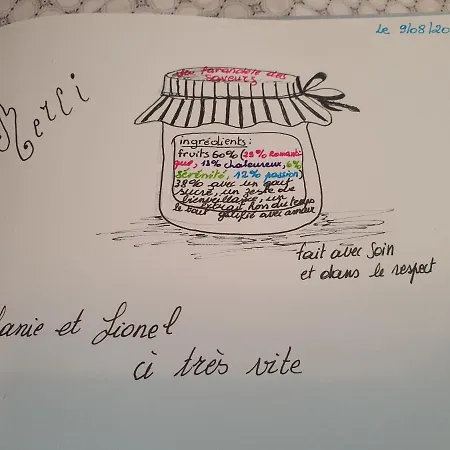 Le 9/08/20
Merci
farandole des
saveurs
ingrédients:
fruits 60% (23% Romanti-
que, 18% chaleureux, 6%
sérénité, 12% passion)
38% avec un gout
sucré, un zeste de
bienveillance, un
hors du temps
le tout gélifié avec amour
fait avec soin
et dans le respect
lanie et Lionel
à très vite